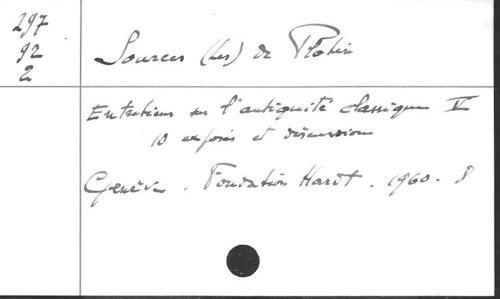 297
92
2
Sources (les) de Plotin
Entretiens sur l'antiquité classique V
10 exposés et discussions
Genève. Fondation Hardt. 1960. 8